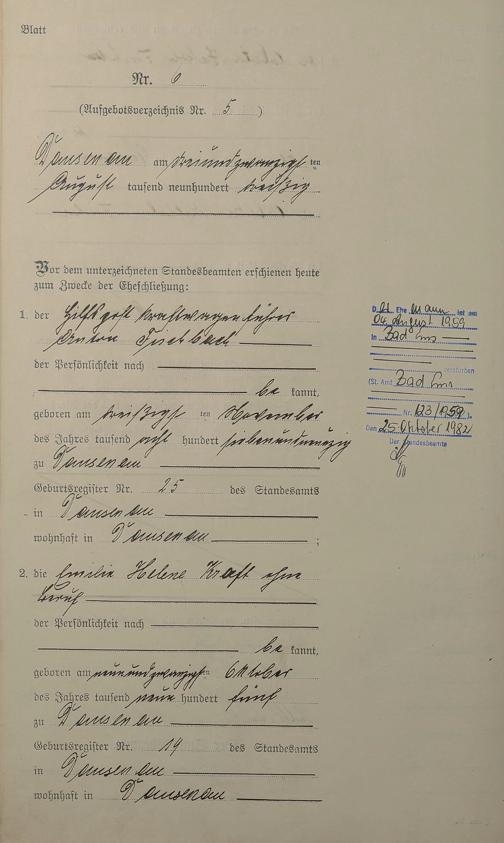 Blatt
Nr. 6
(Aufgebotsverzeichnis Nr. 5 )
Dausenau am dreiundzwanzigsten
August tausend neunhundert dreißig
Vor dem unterzeichneten Standesbeamten erschienen heute
zum Zwecke der Eheschließung:
1. der Hilfspostkraftwagenführer
Anton Fischbach
der Persönlichkeit nach
be kannt,
geboren am dreißigsten November
des Jahres tausend acht hundert siebenundneunzig
zu Dausenau
Geburtsregister Nr. 25 des Standesamts
in Dausenau
wohnhaft in Dausenau ;
2. die Emilie Helene Kraft ohne
Beruf
der Persönlichkeit nach
be kannt,
geboren am neunundzwanzigsten Oktober
des Jahres tausend neun hundert fünf
zu Dausenau
Geburtsregister Nr. 19 des Standesamts
in Dausenau
wohnhaft in Dausenau
D er Ehemann ist am
04. August 1959
in Bad Ems
verstorben
(St. Amt Bad Ems
Nr. 123/1959)
Den 25. Oktober 1982
Der Standesbeamte